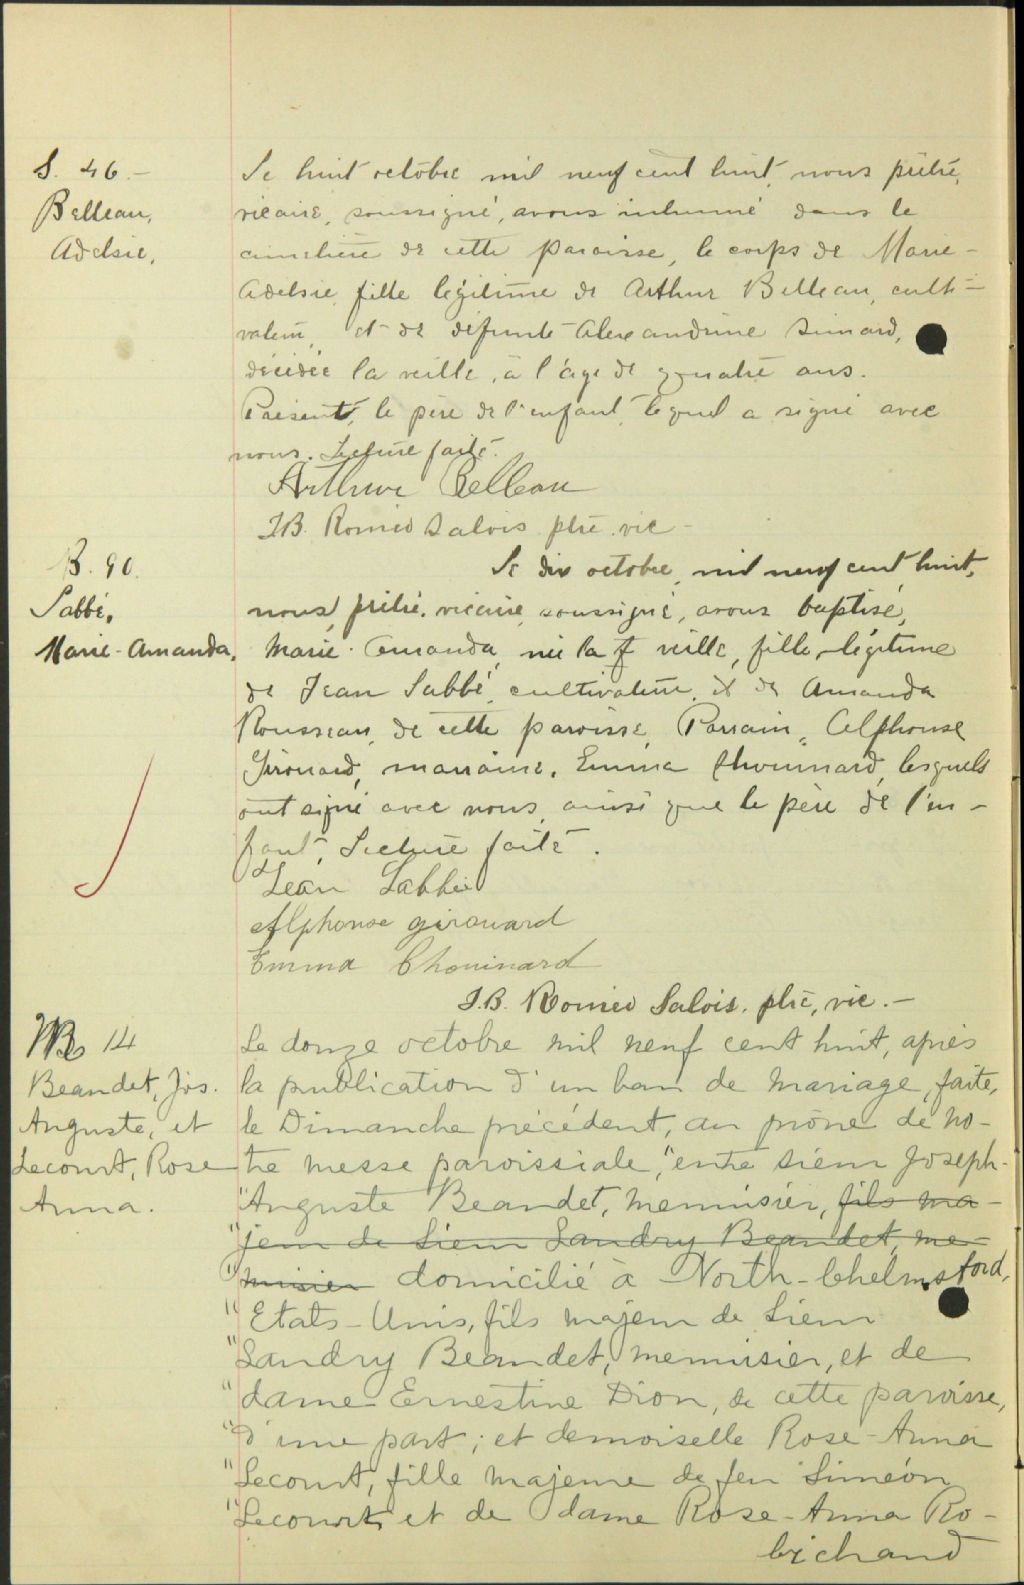 S. 46.-
Belleau,
Adelsie,
Le huit octobre mil neuf cent huit, nous prêtre,
vicaire, soussigné, avons inhumé dans le
cimetière de cette paroisse, le corps de Marie-
Adelsie, fille légitime de Arthur Belleau, culti-
vateur, et de défunte Alexandrine Simard,
décédée la veille, à l'âge de quatre ans.
Présent, le père de l'enfant, lequel a signé avec
nous. Lecture faite.
Arthur Belleau
J.B. Romeo Salois ptre vic-
B. 90.
Labbé,
Marie-Amanda.
Le dix octobre, mil neuf cent huit,
nous, prêtre, vicaire, soussigné, avons baptisé,
Marie-Amanda, née la veille, fille légitime
de Jean Labbé, cultivateur, & de Amanda
Rousseau, de cette paroisse, Parrain, Alphonse
Girouard, marraine, Emma Chouinard, lesquels
ont signé avec nous, ainsi que le père de l'en-
fant, Lecture faite.
Jean Labbé
Alphonse girouard
Emma Chouinard
J.B. Romeo Salois, ptre, vic.-
M 14
Beaudet, Jos.
Auguste, et
Lecourt, Rose
Anna.
Le douze octobre mil neuf cent huit, après
la publication d'un ban de mariage, faite,
le Dimanche précédent, au prône de no-
tre messe paroissiale, "entre sieur Joseph-
"Auguste Beaudet, menuisier, fils ma-
"jeur de Sieur Landry Beaudet, me-
"nuisier domicilié à North-Chelmsford,
"Etats-Unis, fils majeur de Sieur
"Landry Beaudet, menuisier, et de
"dame Ernestine Dion, de cette paroisse,
"d'une part; et demoiselle Rose-Anna
"Lecourt, fille majeure de feu Siméon
"Lecourt et de dame Rose-Anna Ro-
bichaud